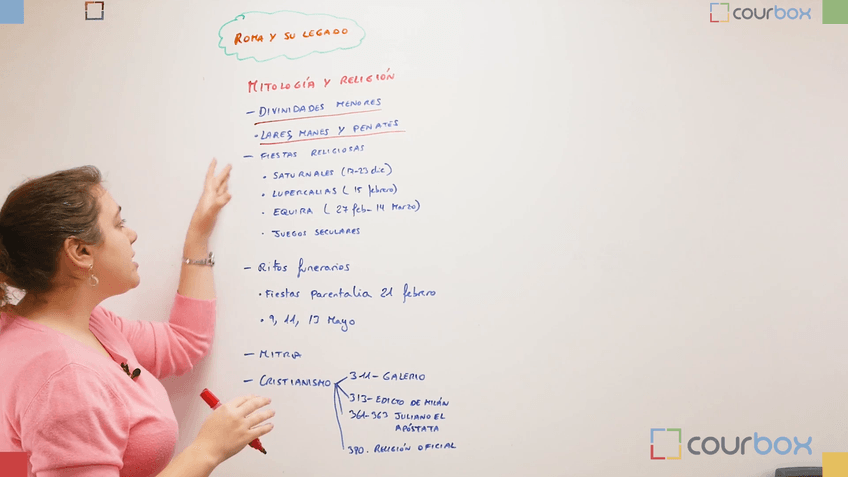 courbox
ROMA Y SU LEGADO
MITOLOGÍA Y RELIGIÓN
- DIVINIDADES MENORES
• LARES, MANES Y PENATES
- FIESTAS RELIGIOSAS
• SATURNALES (17-23 dic)
• LUPERCALIAS (15 febrero)
• EQUIRA (27 feb- 14 Marzo)
• JUEGOS SECULARES
- Ritos funerarios
• Fiestas Parentalia 21 febrero
• 9, 11, 13 Mayo
- MITRA
- CRISTIANISMO
311- GALERIO
313- EDICTO DE MILÁN
361-363 JULIANO EL
APÓSTATA
380. RELIGIÓN OFICIAL
courbox